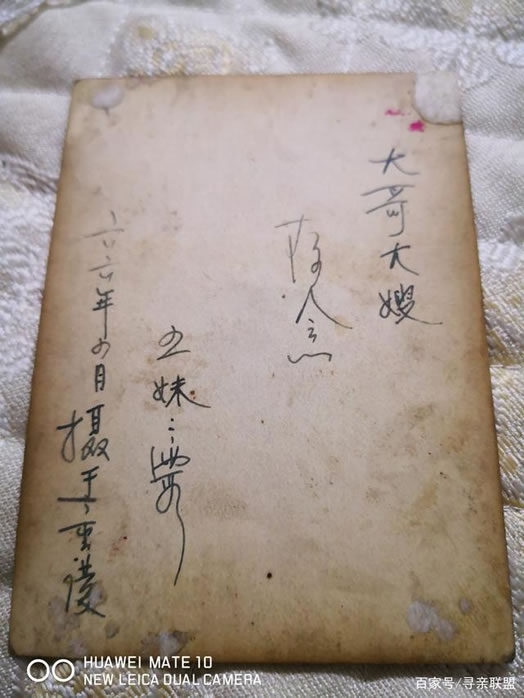 大哥大嫂
存念
五妹
六六年 月摄于重慶
HUAWEI MATE 10
NEW LEICA DUAL CAMERA
百家号/寻亲联盟